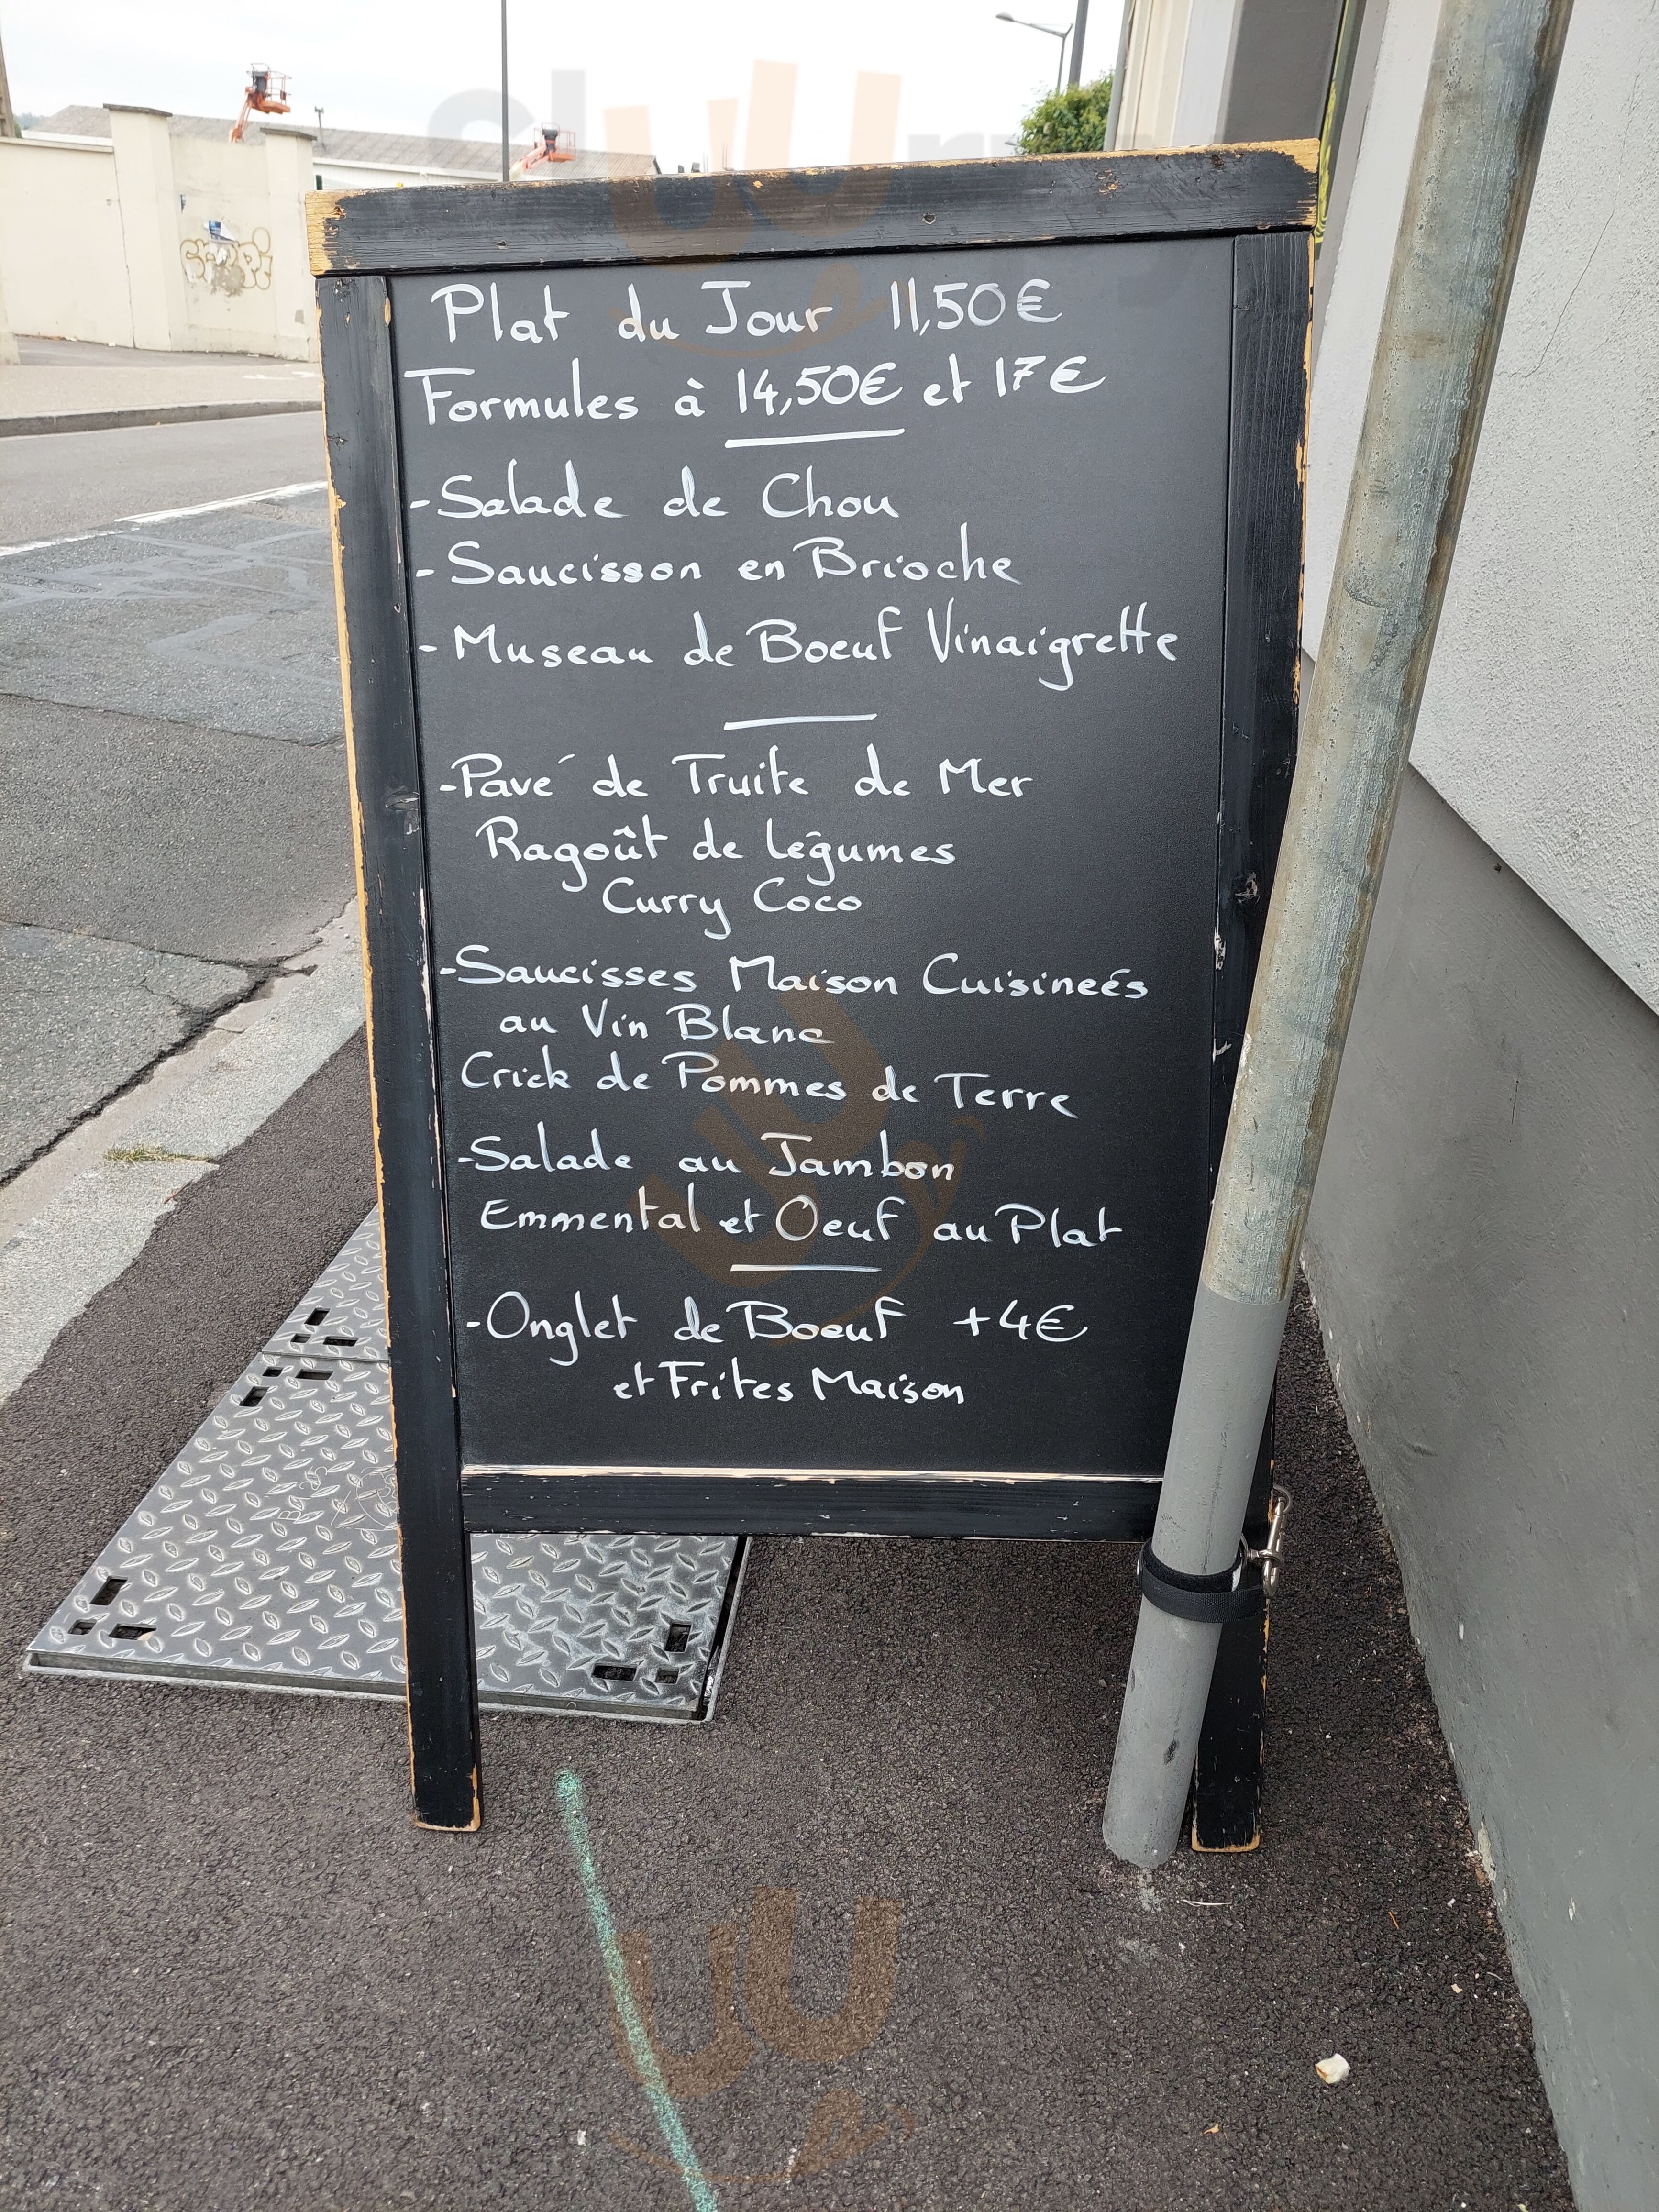 Plat du Jour 11,50€
Formules à 14,50€ et 17€
-Salade de Chou
-Saucisson en Brioche
-Museau de Boeuf Vinaigrette
-Pavé de Truite de Mer
Ragoût de légumes
Curry Coco
-Saucisses Maison Cuisineés
au Vin Blanc
Crick de Pommes de Terre
-Salade au Jambon
Emmental et Oeuf au Plat
-Onglet de Boeuf +4€
et Frites Maison